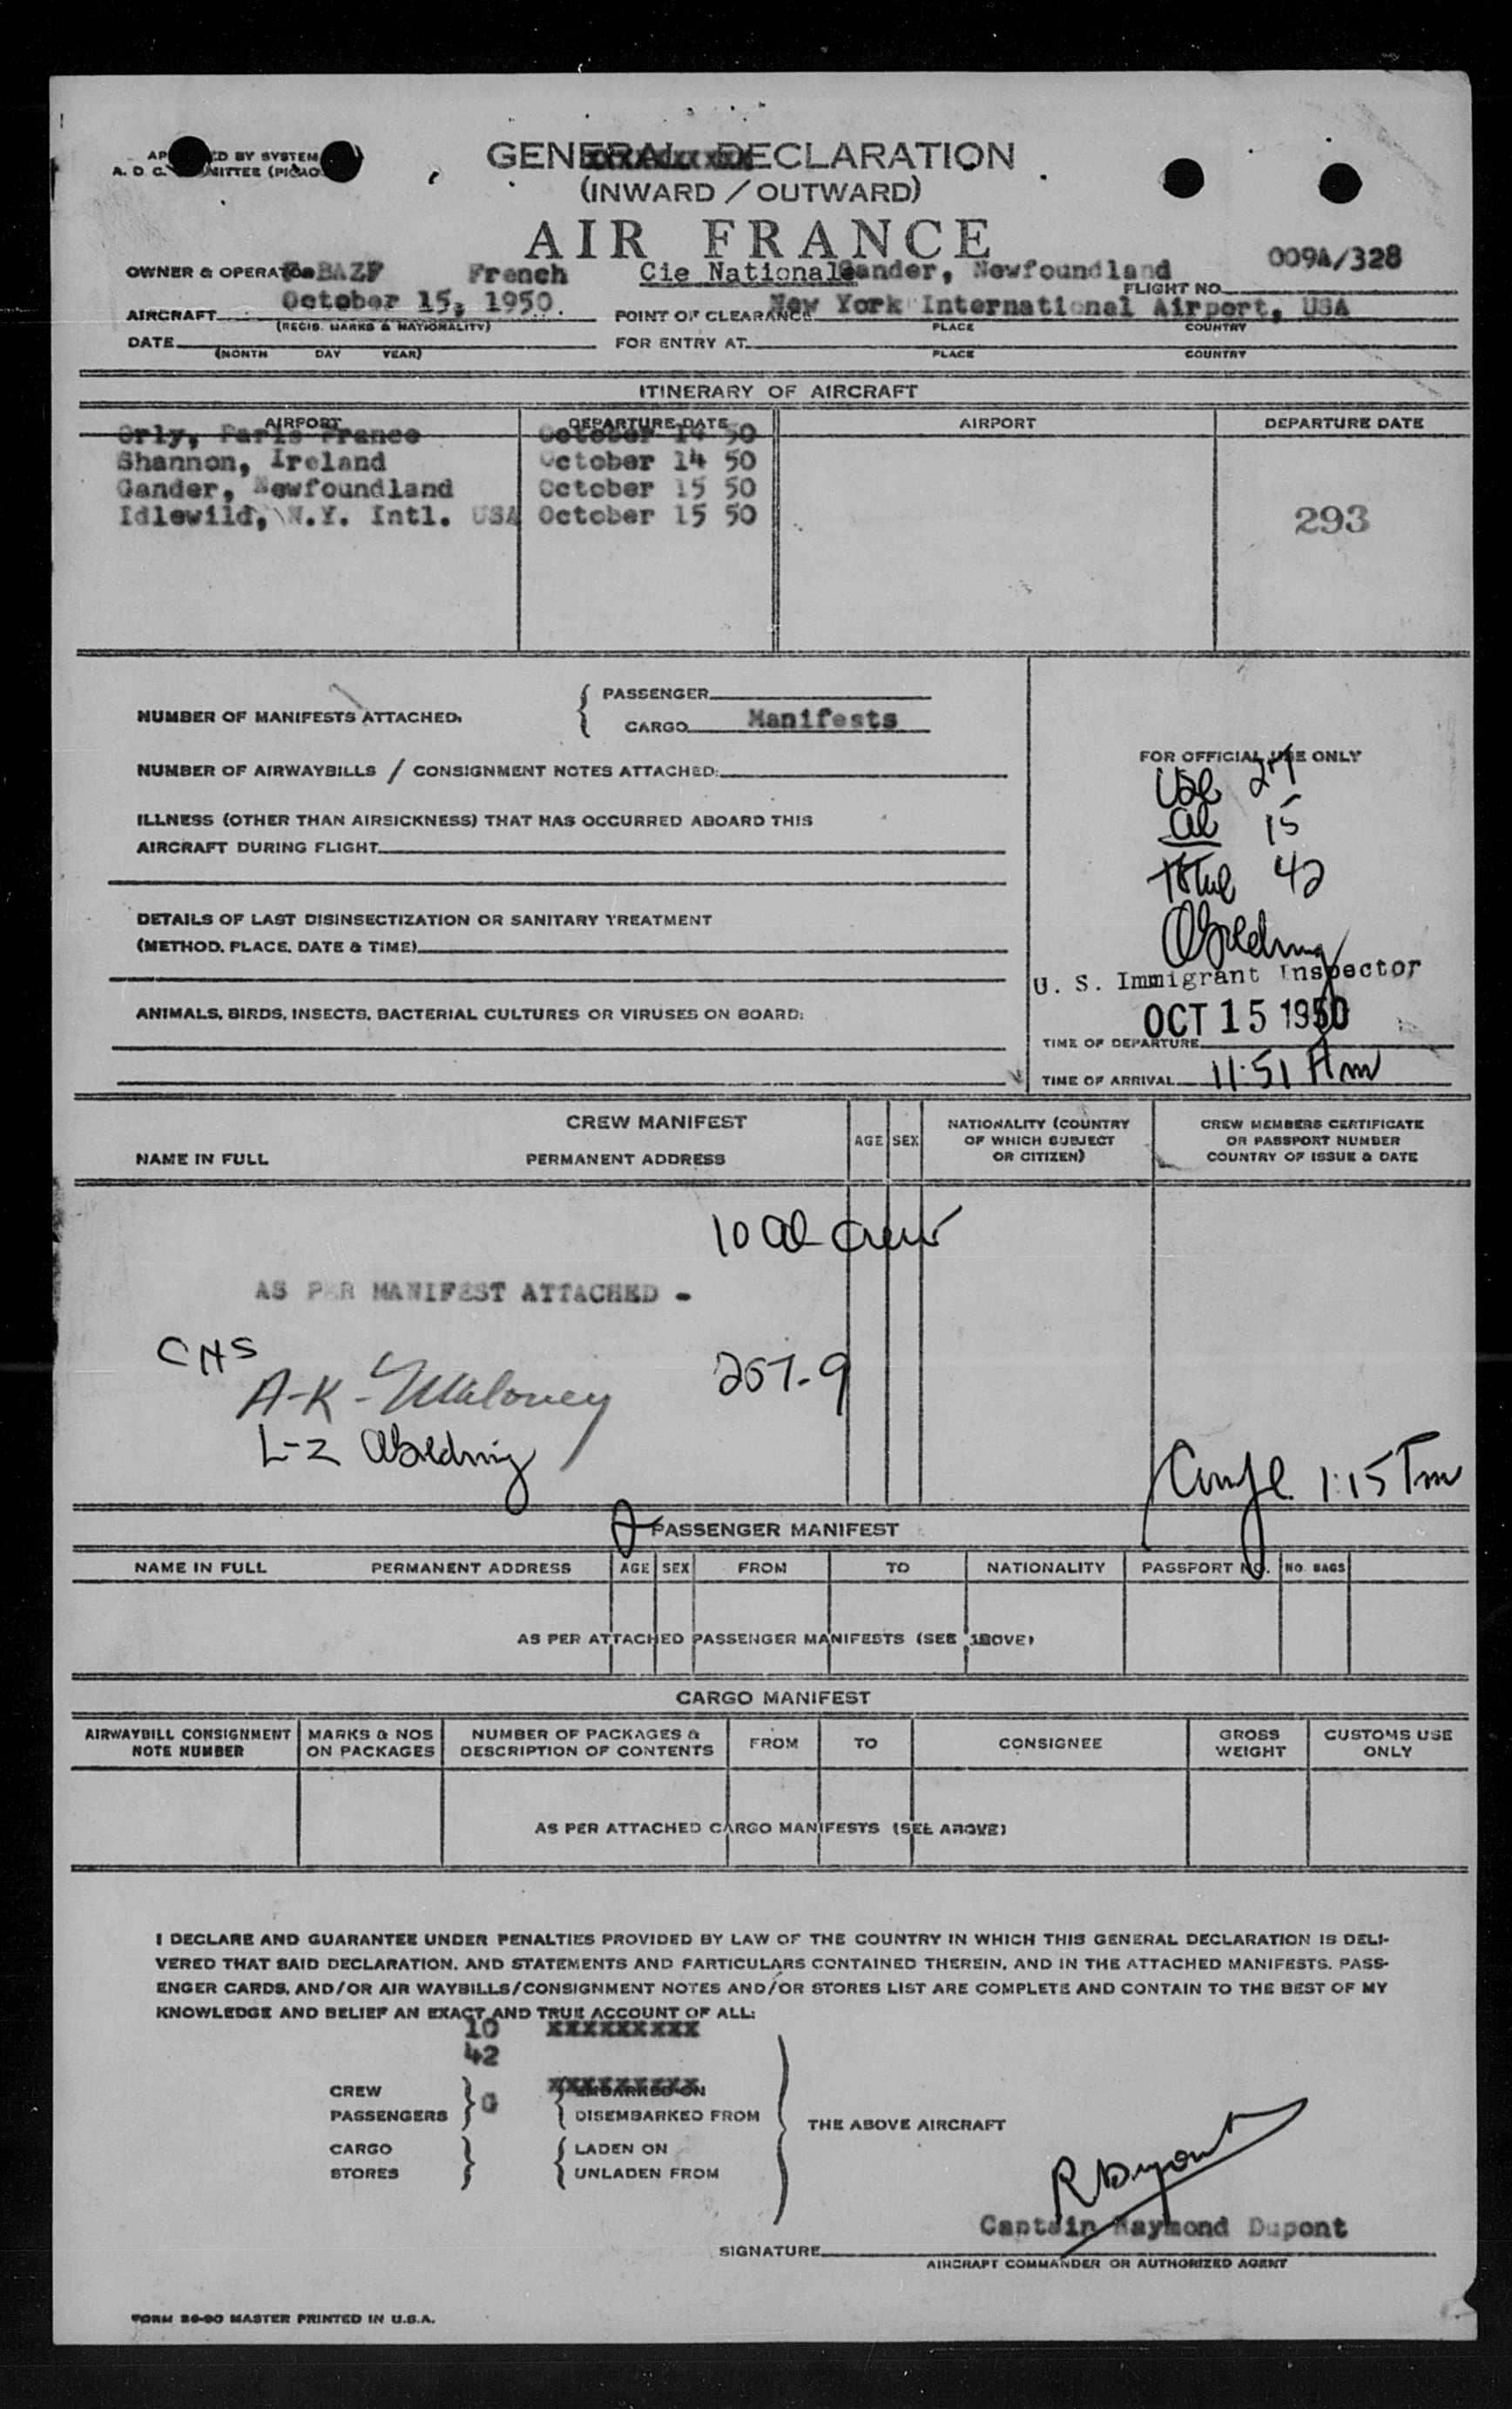 GENERAL DECLARATION
(INWARD / OUTWARD)
AIR FRANCE
OWNER & OPERATOR F-BAZF French Cie Nationale Gander, Newfoundland 009A/328
FLIGHT NO.
AIRCRAFT October 15, 1950. POINT OF CLEARANCE New York International Airport, USA
(REGIS. MARKS & NATIONALITY) PLACE COUNTRY
DATE FOR ENTRY AT
(MONTH DAY YEAR) PLACE COUNTRY
ITINERARY OF AIRCRAFT
AIRPORT DEPARTURE DATE AIRPORT DEPARTURE DATE
Orly, Paris France October 14 50
Shannon, Ireland October 14 50
Gander, Newfoundland October 15 50
Idlewild, N.Y. Intl. USA October 15 50
293
NUMBER OF MANIFESTS ATTACHED:
PASSENGER
CARGO Manifests
NUMBER OF AIRWAYBILLS / CONSIGNMENT NOTES ATTACHED:
ILLNESS (OTHER THAN AIRSICKNESS) THAT HAS OCCURRED ABOARD THIS
AIRCRAFT DURING FLIGHT
DETAILS OF LAST DISINSECTIZATION OR SANITARY TREATMENT
(METHOD, PLACE, DATE & TIME)
ANIMALS, BIRDS, INSECTS, BACTERIAL CULTURES OR VIRUSES ON BOARD:
FOR OFFICIAL USE ONLY
USC 27
al 15
Total 42
U. S. Immigrant Inspector
OCT 15 1950
TIME OF DEPARTURE
TIME OF ARRIVAL 11:51 Am
CREW MANIFEST
NAME IN FULL PERMANENT ADDRESS
AGE SEX
NATIONALITY (COUNTRY
OF WHICH SUBJECT
OR CITIZEN)
CREW MEMBERS CERTIFICATE
OR PASSPORT NUMBER
COUNTRY OF ISSUE & DATE
10 al crew
AS PER MANIFEST ATTACHED -
CHS
A-K - Maloney 257-9
L-Z
1:15 Pm
PASSENGER MANIFEST
NAME IN FULL PERMANENT ADDRESS AGE SEX FROM TO NATIONALITY PASSPORT NO. NO. BAGS
AS PER ATTACHED PASSENGER MANIFESTS (SEE ABOVE)
CARGO MANIFEST
AIRWAYBILL CONSIGNMENT
NOTE NUMBER
MARKS & NOS
ON PACKAGES
NUMBER OF PACKAGES &
DESCRIPTION OF CONTENTS
FROM TO CONSIGNEE
GROSS
WEIGHT
CUSTOMS USE
ONLY
AS PER ATTACHED CARGO MANIFESTS (SEE ABOVE)
I DECLARE AND GUARANTEE UNDER PENALTIES PROVIDED BY LAW OF THE COUNTRY IN WHICH THIS GENERAL DECLARATION IS DELI-
VERED THAT SAID DECLARATION, AND STATEMENTS AND PARTICULARS CONTAINED THEREIN, AND IN THE ATTACHED MANIFESTS, PASS-
ENGER CARDS, AND/OR AIR WAYBILLS/CONSIGNMENT NOTES AND/OR STORES LIST ARE COMPLETE AND CONTAIN TO THE BEST OF MY
KNOWLEDGE AND BELIEF AN EXACT AND TRUE ACCOUNT OF ALL:
10 XXXXXXXXX
42
CREW EMBARKED ON
PASSENGERS DISEMBARKED FROM
THE ABOVE AIRCRAFT
CARGO LADEN ON
STORES UNLADEN FROM
Captain Raymond Dupont
SIGNATURE
AIRCRAFT COMMANDER OR AUTHORIZED AGENT
FORM 26-90 MASTER PRINTED IN U.S.A.